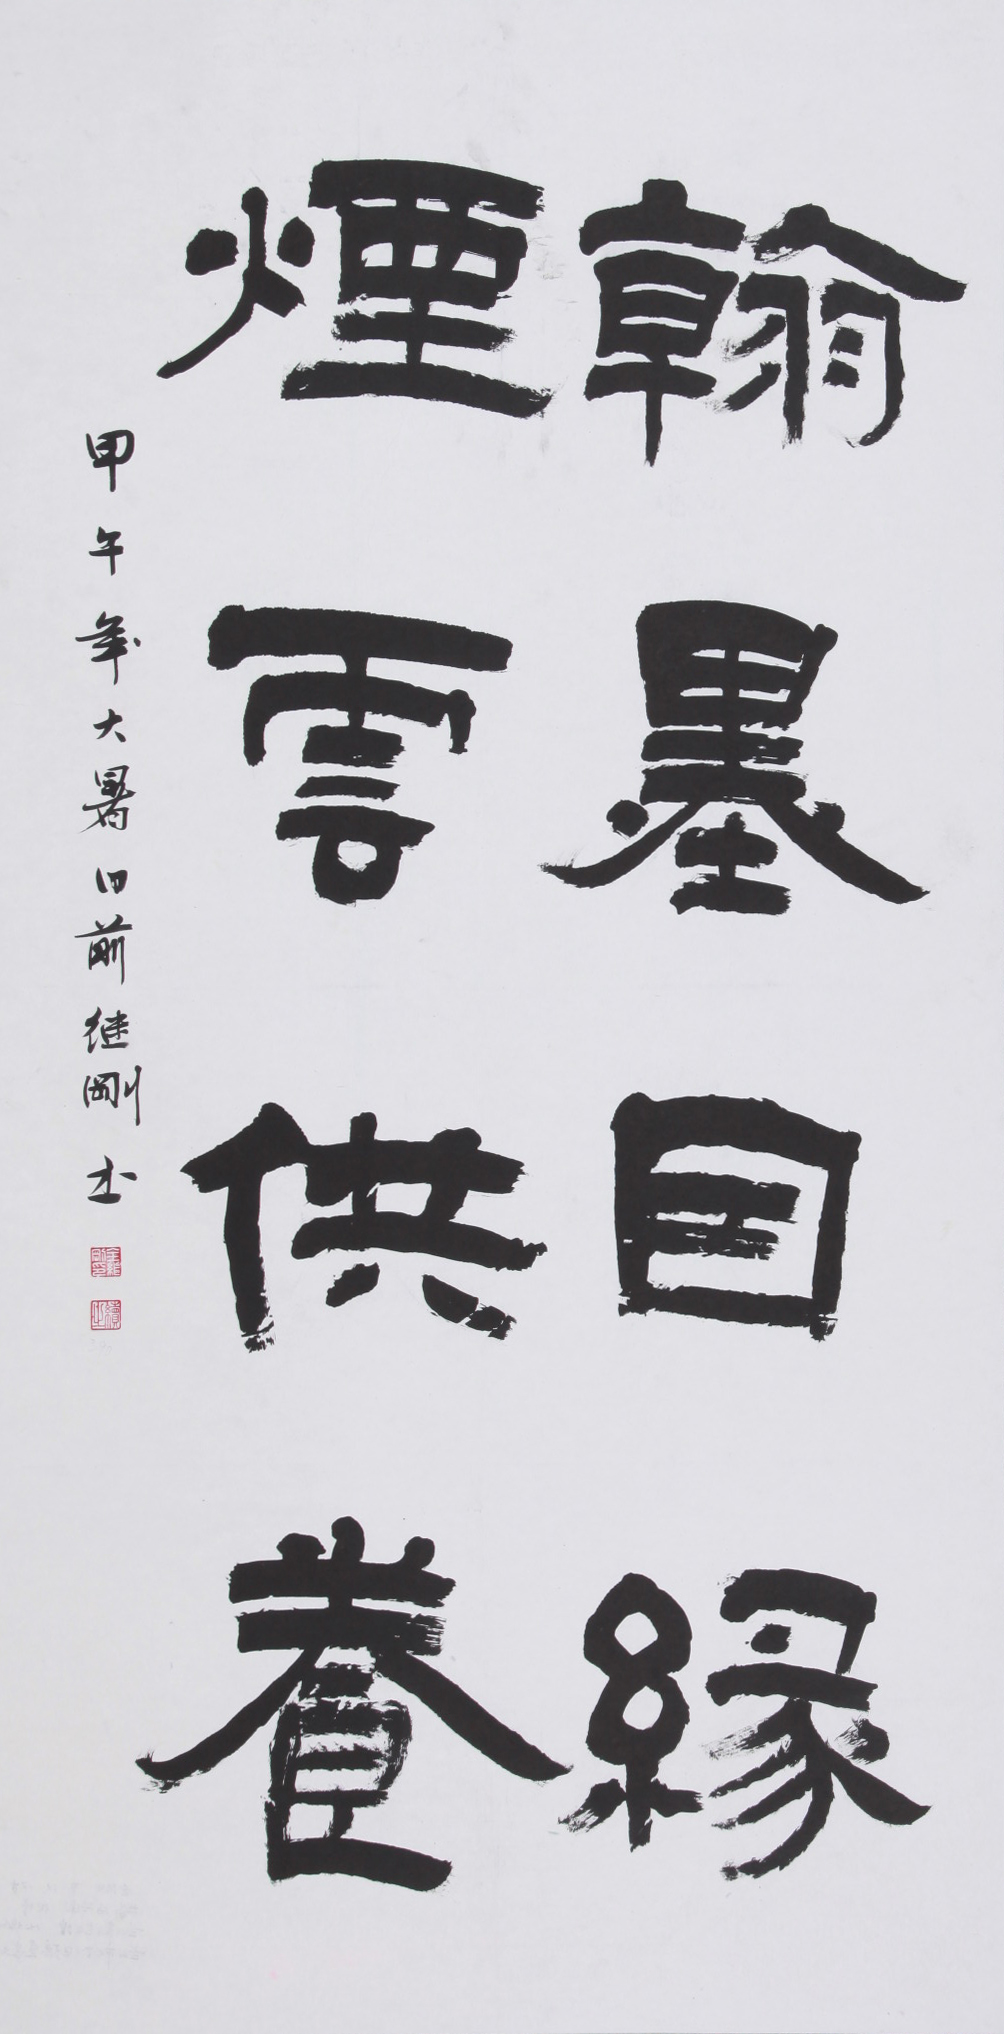 翰墨因緣
煙雲供養
甲午年大暑日前继剛书